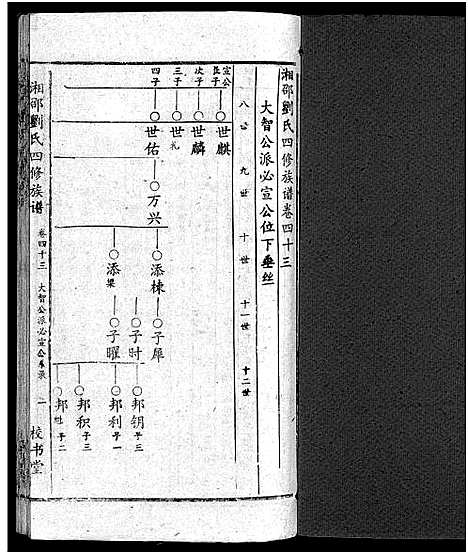 湘邵劉氏四修族谱卷四十三
大智公派必宣公位下垂丝
八世 九世 十世 十一世 十二世
宣公長子 世麒
次子 世麟
三子 世礼
四子 世佑
万兴
添棟
添梁
子犀
子时
子曜
邦钥 子三
邦利 子一
邦积 子三
邦 子二
湘邵劉氏四修族谱 卷四十三 大智公派必宣公垂录 一 校书堂